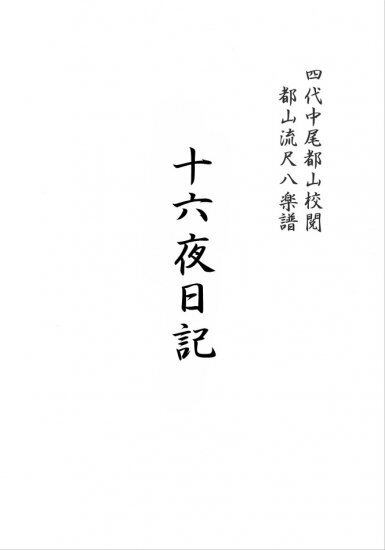 四代中尾都山校閲
都山流尺八楽譜
十六夜日記